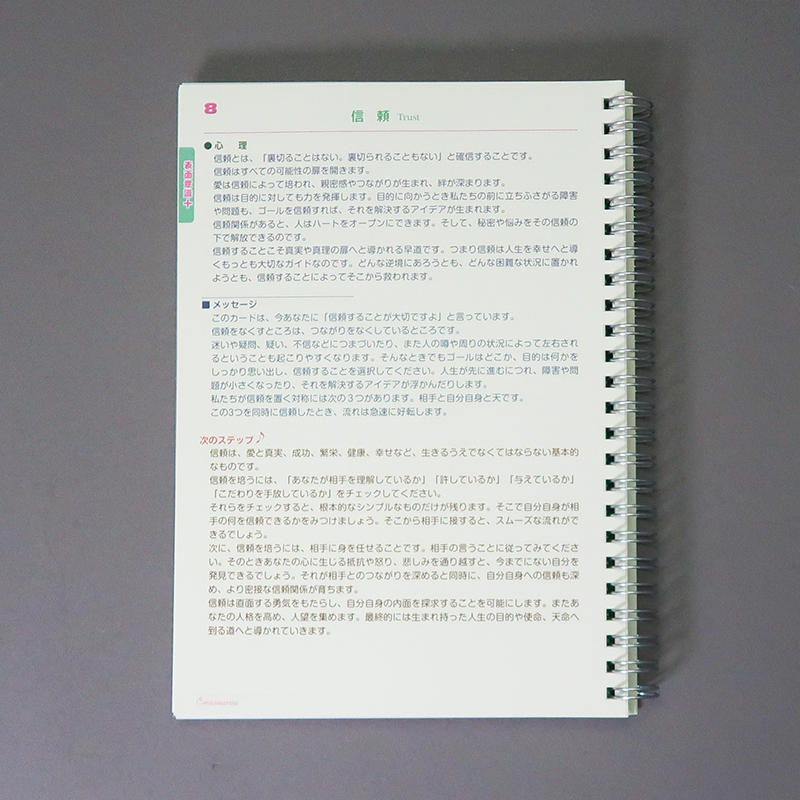 8
信 頼 Trust
表面意識+
●心 理
信頼とは、「裏切ることはない。裏切られることもない」と確信することです。
信頼はすべての可能性の扉を開きます。
愛は信頼によって培われ、親密感やつながりが生まれ、絆が深まります。
信頼は目的に対しても力を発揮します。目的に向かうとき私たちの前に立ちふさがる障害
や問題も、ゴールを信頼すれば、それを解決するアイデアが生まれます。
信頼関係があると、人はハートをオープンにできます。そして、秘密や悩みをその信頼の
下で解放できるのです。
信頼することこそ真実や真理の扉へと導かれる早道です。つまり信頼は人生を幸せへと導
くもっとも大切なガイドなのです。どんな逆境にあろうとも、どんな困難な状況に置かれ
ようとも、信頼することによってそこから救われます。
■メッセージ
このカードは、今あなたに「信頼することが大切ですよ」と言っています。
信頼をなくすところは、つながりをなくしているところです。
迷いや疑問、疑い、不信などにつまづいたり、また人の噂や周りの状況によって左右され
るということも起こりやすくなります。そんなときでもゴールはどこか、目的は何かを
しっかり思い出し、信頼することを選択してください。人生が先に進むにつれ、障害や問
題が小さくなったり、それを解決するアイデアが浮かんだりします。
私たちが信頼を置く対称には次の3つがあります。相手と自分自身と天です。
この3つを同時に信頼したとき、流れは急速に好転します。
次のステップ♪
信頼は、愛と真実、成功、繁栄、健康、幸せなど、生きるうえでなくてはならない基本的
なものです。
信頼を培うには、「あなたが相手を理解しているか」「許しているか」「与えているか」
「こだわりを手放しているか」をチェックしてください。
それらをチェックすると、根本的なシンプルなものだけが残ります。そこで自分自身が相
手の何を信頼できるかをみつけましょう。そこから相手に接すると、スムーズな流れがで
きるでしょう。
次に、信頼を培うには、相手に身を任せることです。相手の言うことに従ってみてくださ
い。そのときあなたの心に生じる抵抗や怒り、悲しみを通り越すと、今までにない自分を
発見できるでしょう。それが相手とのつながりを深めると同時に、自分自身への信頼も深
め、より密接な信頼関係が育ちます。
信頼は直面する勇気をもたらし、自分自身の内面を探求することを可能にします。またあ
なたの人格を高め、人望を集めます。最終的には生まれ持った人生の目的や使命、天命へ
到る道へと導かれていきます。